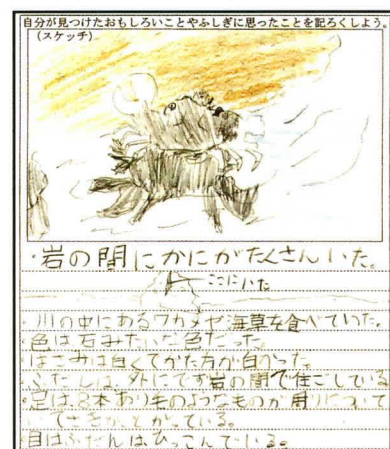 自分が見つけたおもしろいことやふしぎに思ったことを記ろくしよう。
(スケッチ)
・岩の間にかにがたくさんいた。
ここにいた
・川の中にあるワカメや海草を食べていた。
・色は石みたいな色だった。
・はさみは白くてかた方が白かった。
・ふだんは、外にでず岩の間で住ごしている
・足は、8本あり毛のようなものが周りについて
いてさきが、とがっている。
・目はふだんはひっこんでいる。